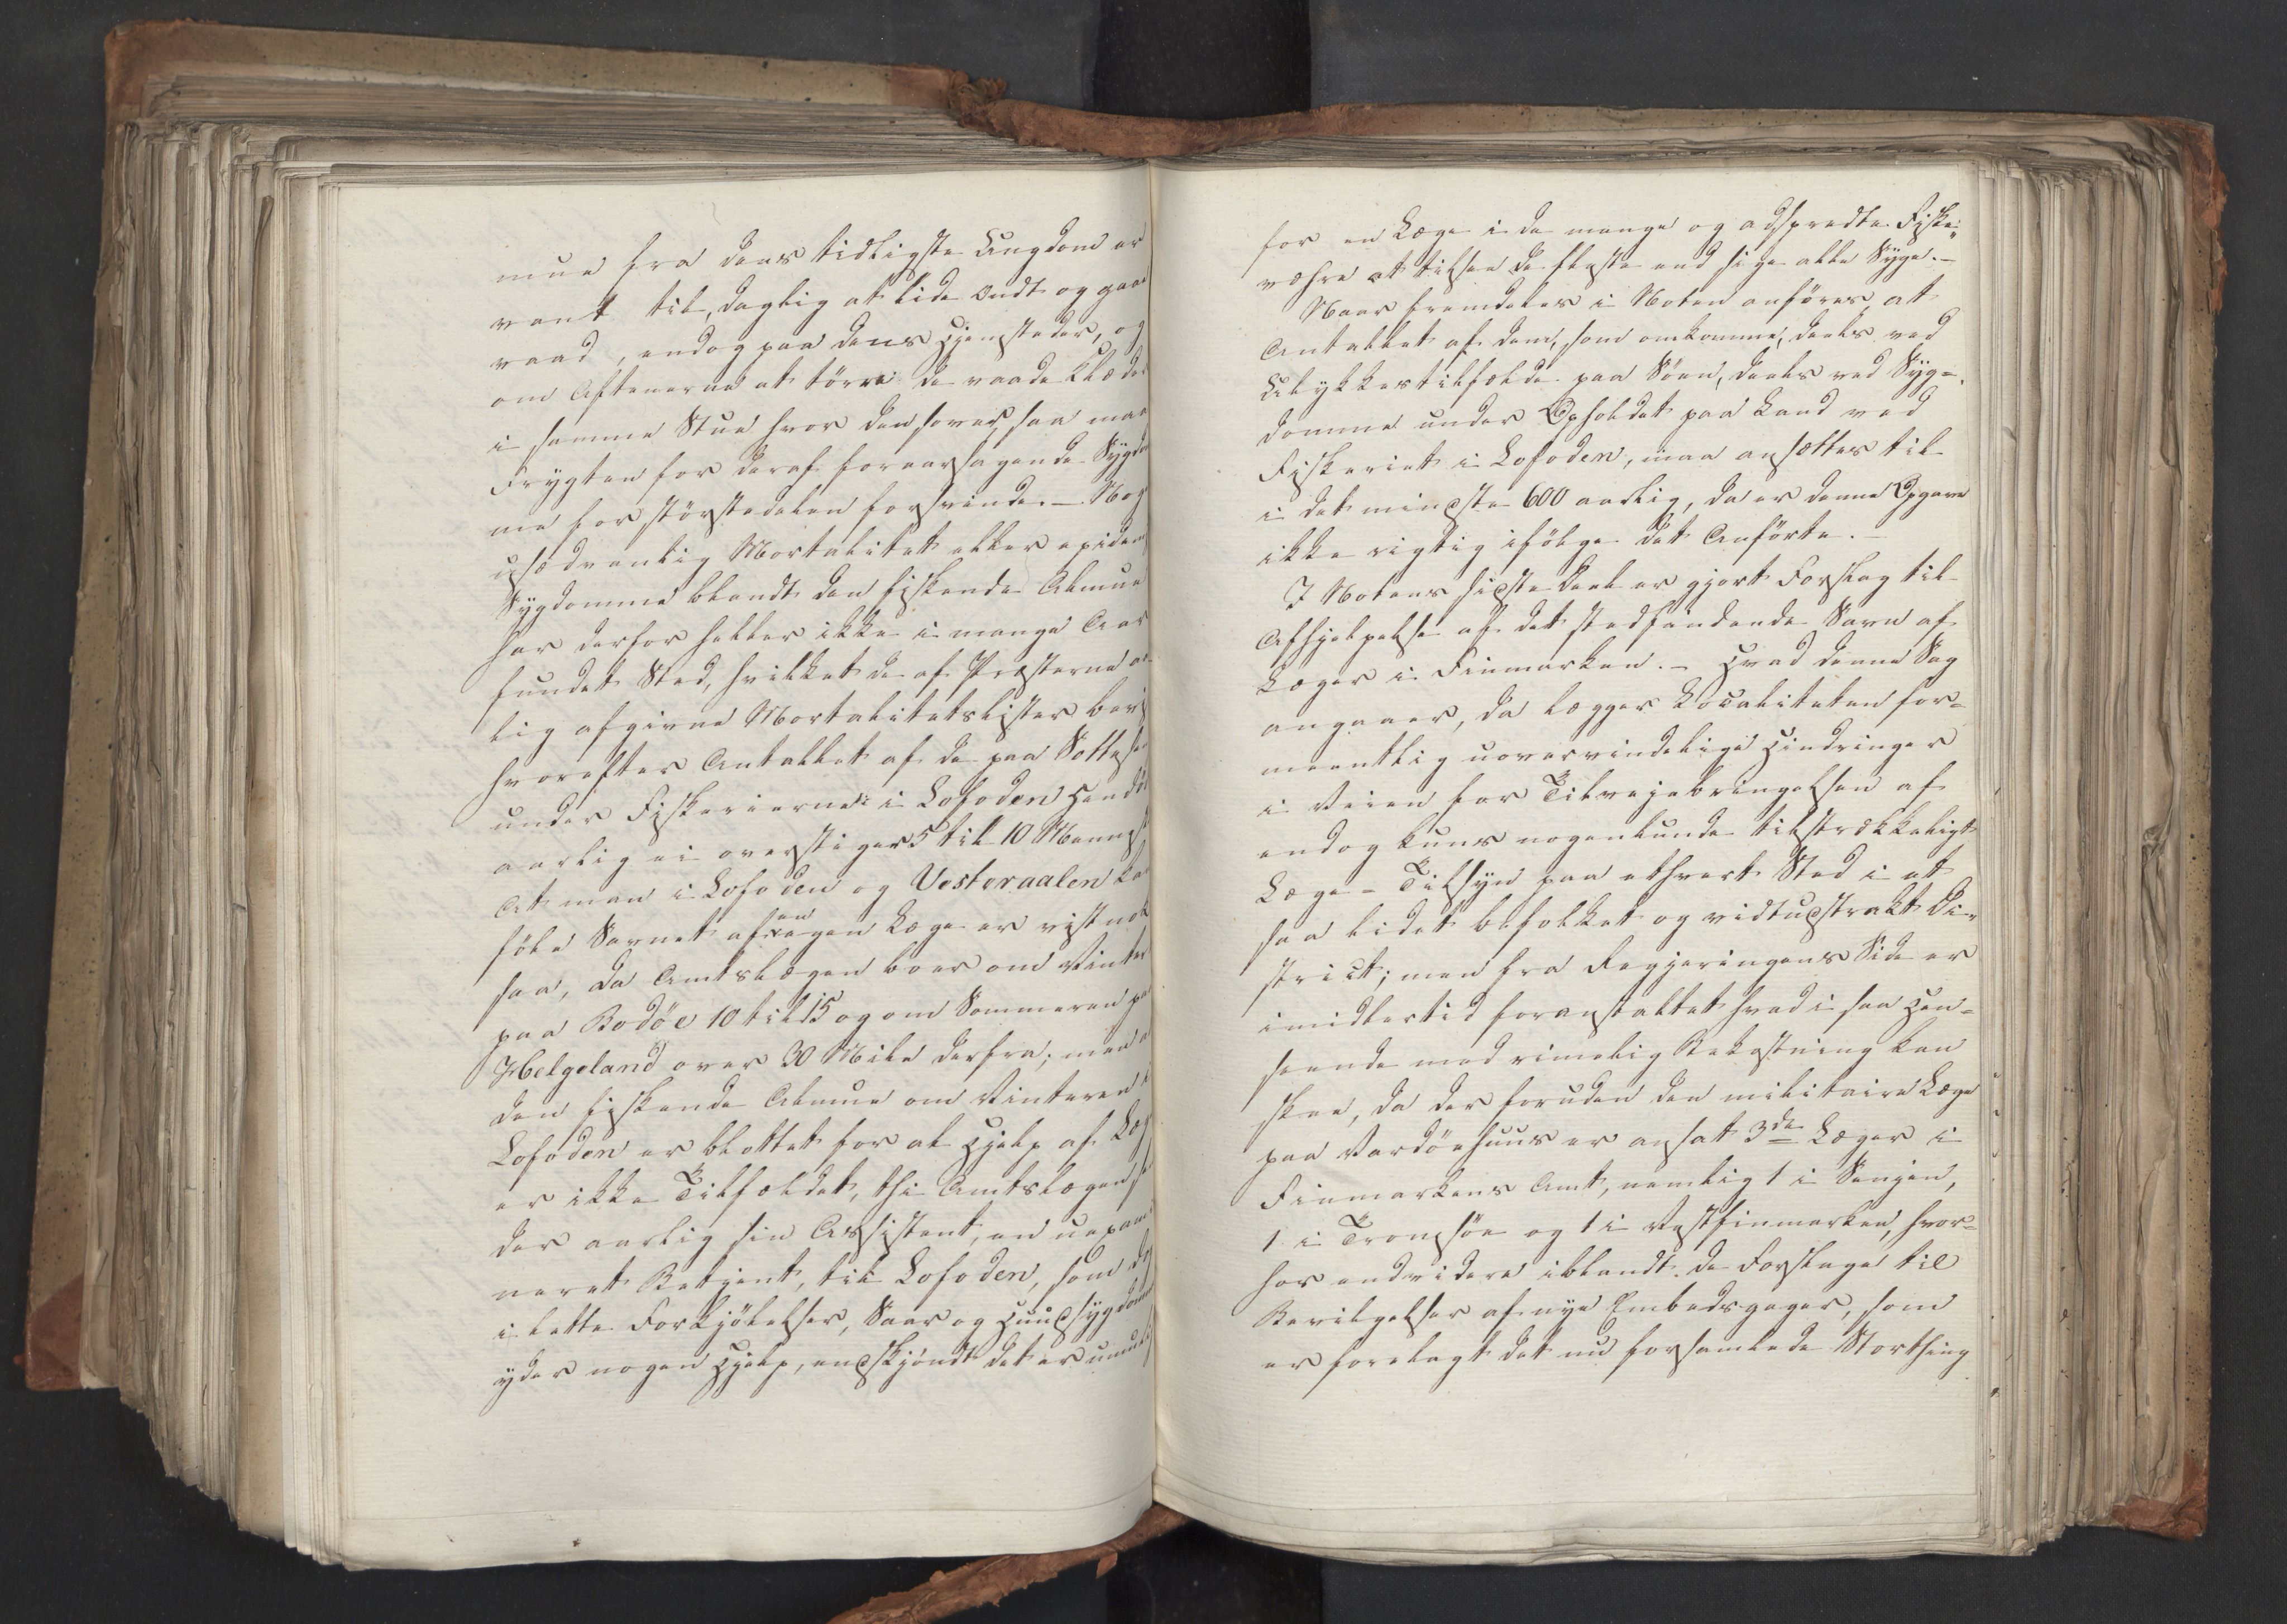 mue fra dens tidligste Ungdom er
vant til, daglig at lide Ondt og gaae
vaad, endog paa dens Hjemsteder, og
om Aftenerne at törre de vaade Klæder
i samme Stue hvor den sover, saa maa
Frygten for deraf foraarsagende Sygdom
me for störstedelen forsvinde. – Nog
usædvanlig Mortalitet eller epidem
Sygdomme blandt den fiskende Almue
har derfor heller ikke i mange Aar
fundet Sted, hvilket de af Præsterne aar
lig afgivne Mortalitetslister bevi
hvorefter Antallet af de paa Sottese
under Fiskerierne i Lofoden Hendö
aarlig ei overstiger 5 til 10 Mennesk
At man i Lofoden og Vesteraalen kan
föle Savnet af en egen Læge er vistnok
saa, da Amtslægen boer om Vinter
paa Bodöe 10 til 15 og om Sommeren pa
Helgeland over 30 Mile derfra; men a
den fiskende Almue om Vinteren i
Lofoden er blottet for al Hjelp af Læg
er ikke Tilfældet, thi Amtslægen se
der aarlig sin Assistent, en uexami
neret Betjent, til Lofoden, som de
i lette Forkjölelser, Saar og HuusSygdomme
yder nogen Hjelp, endskjöndt det er umuli
for en Læge i de mange og adspredte Fiske-
vehre at tilsee de fleste end sige alle Syge. –
Naar fremdeles i Noten anföres, at
Antallet af dem, som omkomme, deels ved
Ulykkestilfælde paa Söen, deels ved Syg=
domme under Opholdet paa Land ved
Fiskeriet i Lofoden, maa ansættes til
i det mindste 600 aarlig, da er denne Opgave
ikke rigtig ifölge det Anförte. –
I Notens sidste Deel er gjort Forslag til
Afhjelpelse af det stedfindende Savn af
Læger i Finmarken. – Hvad denne Sag
angaaer, da lægger Localiteten for=
meentlig uovervindelige Hindringer
i Veien for Tilvejebringelsen af
endog kuns nogenlunde tilstrækkeligt
Læge-Tilsyn paa ethvert Sted i et
saa lidet befolket og vidtudstrakt Di-
strict; men fra Regjeringens Side er
imidlertid foranstaltet hvad i saa Hen=
seende med rimelig Bekostning kan
skee, da der foruden den militaire Læge
paa Vardöehuus er ansat 3de Læger i
Finmarkens Amt, nemlig 1 i Senjen,
1 i Tromsöe og 1 i Vestfinmarken, hvor=
hos endvidere iblandt de Forslage til
Bevilgelser af nye Embedsgager, som
er forelagt det nu forsamlede Storthing